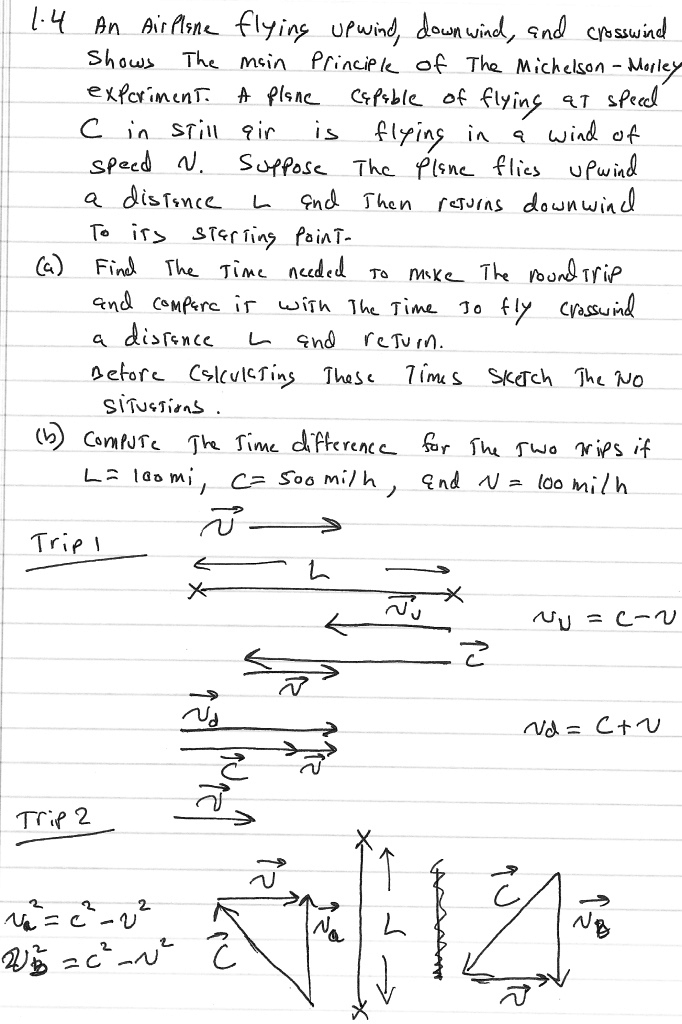 1.4 An Airplane flying upwind, downwind, and crosswind
shows The main Principle of The Michelson-Morley
experiment. A plane capable of flying at speed
C in still air is flying in a wind of
speed v. Suppose The plane flies upwind
a distance L and Then returns downwind
To its starting point.
(a) Find The Time needed to make The round trip
and compare it with The Time to fly crosswind
a distance L and return.
Before Calculating These Times Sketch The two
situations.
(b) Compute The Time difference for The two trips if
L = 100 mi, C = 500 mi/h, and v = 100 mi/h
Trip 1
v⃗
L
v⃗u
vu = c - v
c⃗
v⃗
v⃗d
vd = C + v
c⃗ v⃗
Trip 2
v⃗
v⃗
va² = c² - v²
c⃗
v⃗a
L
c⃗
v⃗B
vB² = c² - v²
v⃗